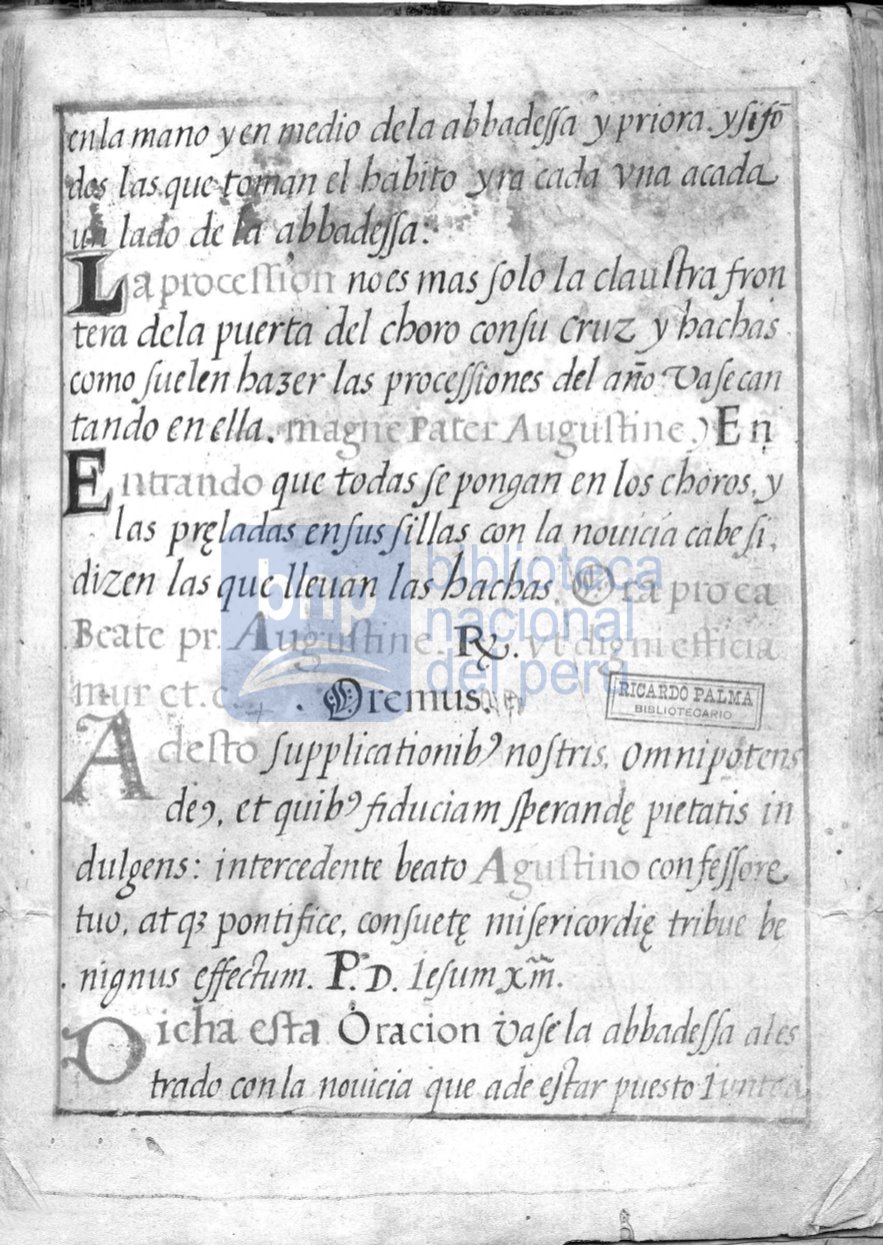 enla mano y en medio dela abbadessa y priora. y si sō
dos las que toman el habito yra cada vna acada
un lado de la abbadessa.
La procession no es mas solo la claustra fron
tera dela puerta del choro con su Cruz y hachas
como suelen hazer las processiones del año. Vase can
tando en ella. magne Pater Augustine.) En
Entrando que todas se pongan en los choros, y
las pręladas en sus sillas con la nouicia cabe si,
dizen las que lleuan las hachas. Ora pro ea
Beate pr. Augustine. ℟. vt digni efficia
mur et.c. Oremus.
Adesto supplicationibꝰ nostris, omnipotens
deꝰ, et quibꝰ fiduciam sperandę pietatis in
dulgens: intercedente beato Agustino confessore
tuo, atqꝫ pontifice, consuetę misericordię tribue be
nignus effectum. P. D. Iesum xm̃.
Dicha esta Oracion vase la abbadessa al es
trado con la nouicia que ade estar puesto Iunto a
bnp biblioteca
nacional
del perú
RICARDO PALMA
BIBLIOTECARIO